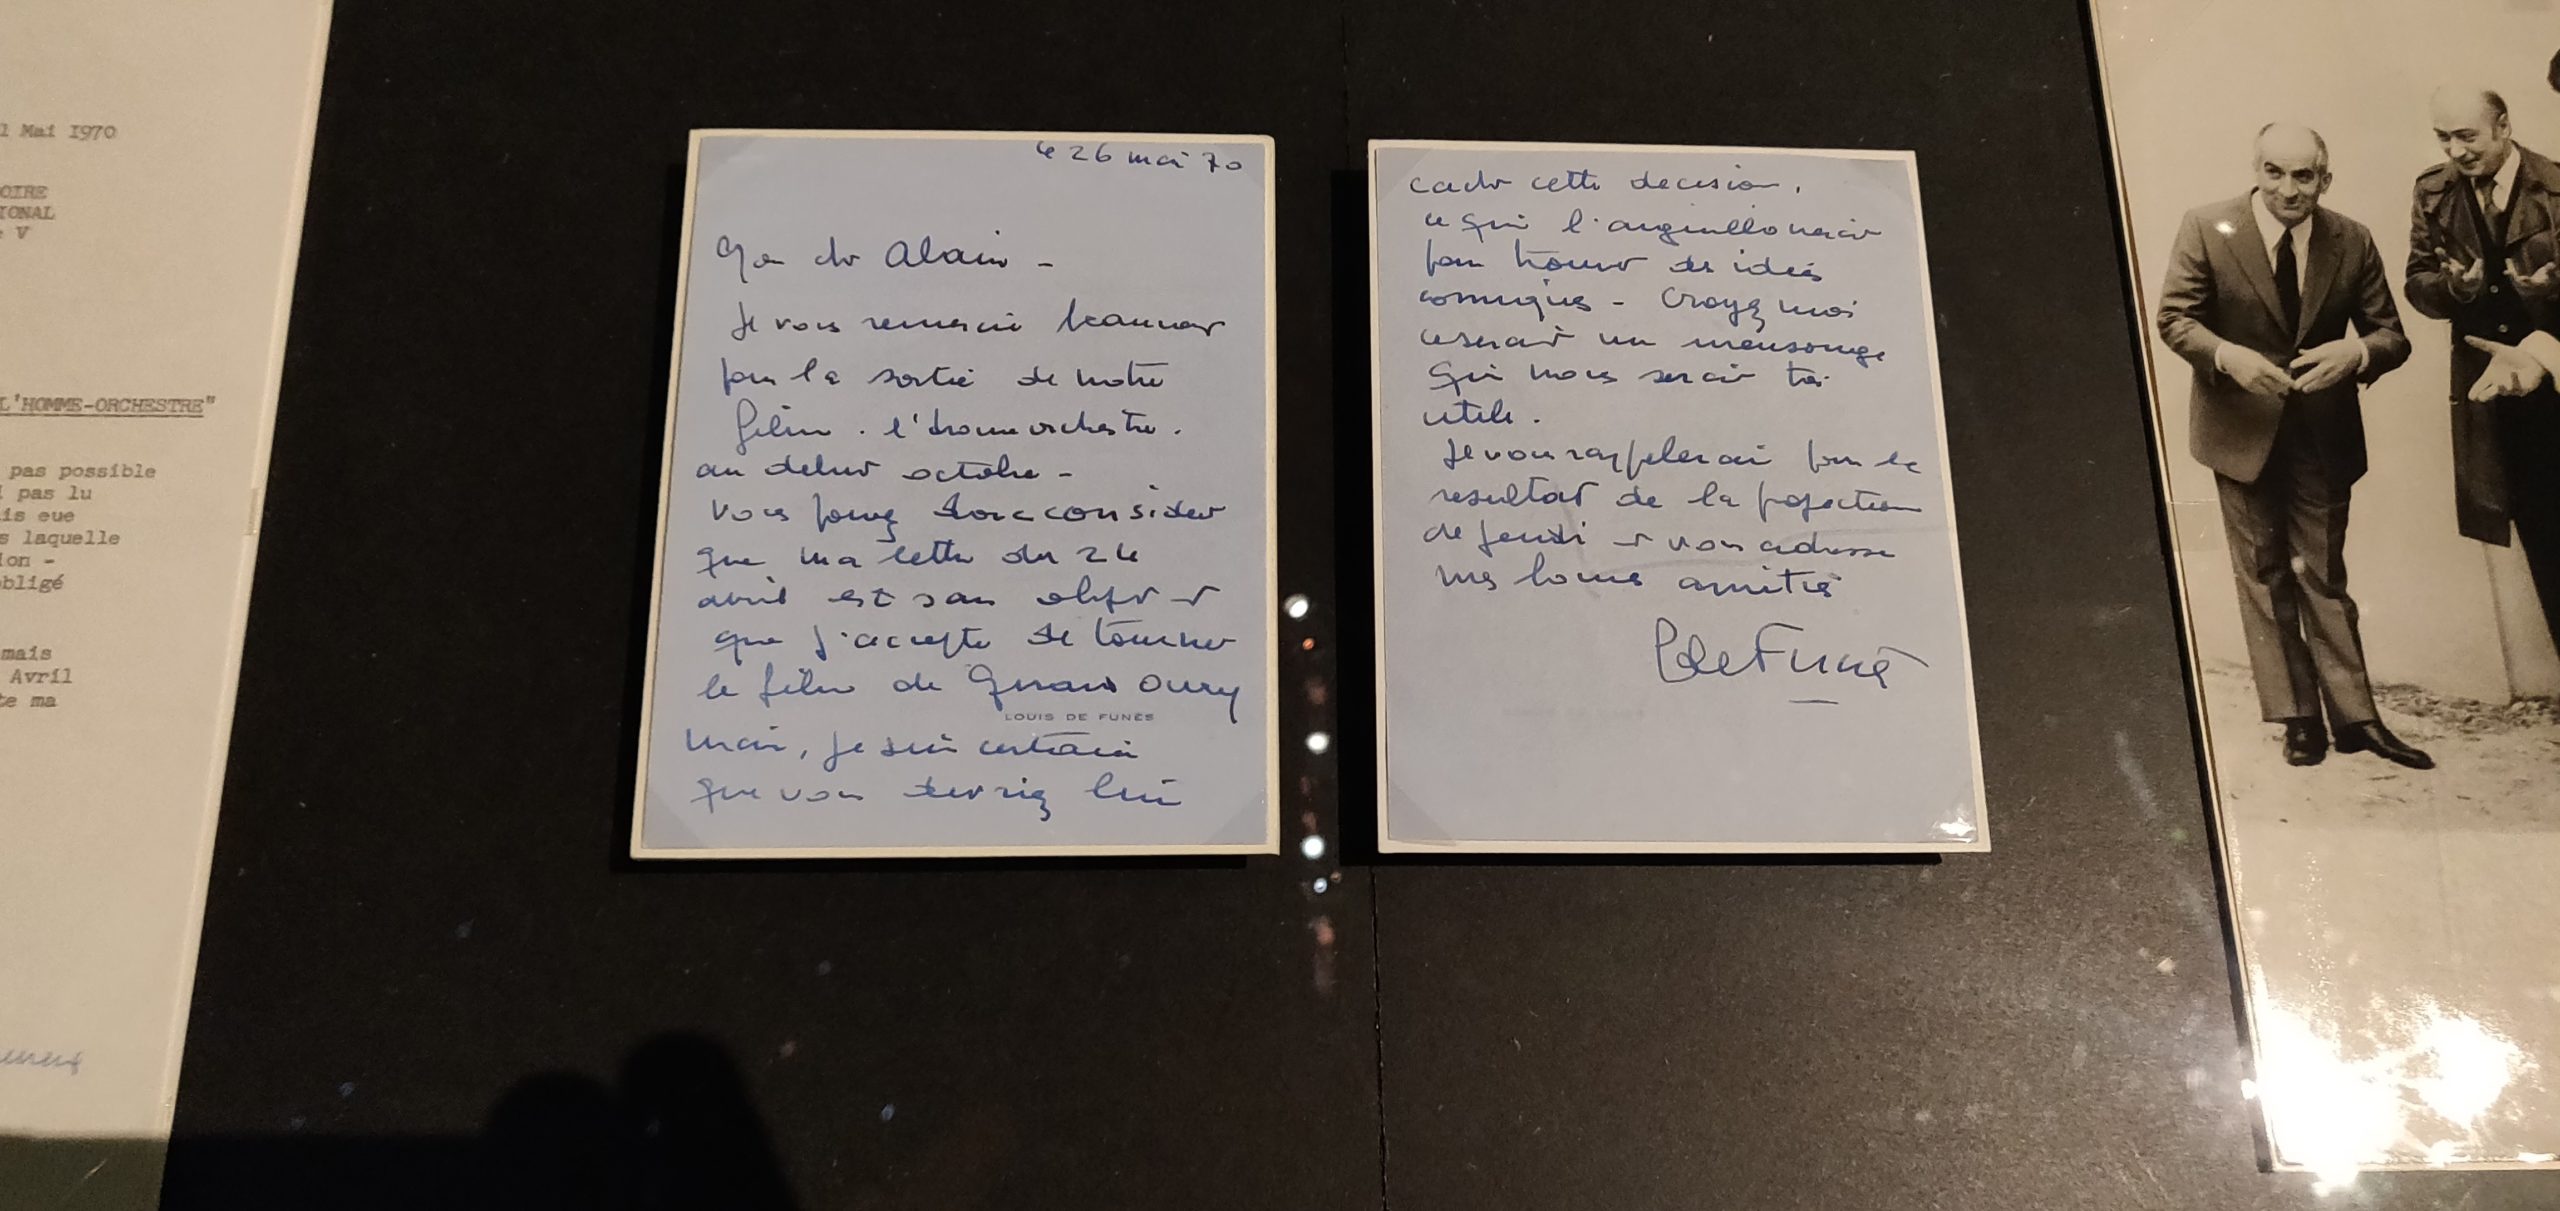 1 Mai 1970
OIRE
IONAL
e V
L'HOMME-ORCHESTRE"
pas possible
pas lu
is eue
s laquelle
ion -
obligé
mais
Avril
te ma
le 26 mai 70
Mon cher Alain -
Je vous remercie beaucoup
pour la sortie de notre
film . l'homme orchestre .
au debut octobre -
Vous pouvez donc considerer
que ma lettre du 24
avril est sans objet et
que j'accepte de tourner
le film de Gerard Oury
LOUIS DE FUNÈS
mais, je suis certain
que vous devriez lui
cacher cette decision,
ce qui l'aiguillonerait
pour trouver des idées
comiques - Croyez moi
ce serait un mensonge
qui nous serait très
utile .
Je vous rappelerai pour le
resultat de la projection
de jeudi et vous adresse
mes bonnes amitiés
L de Funès